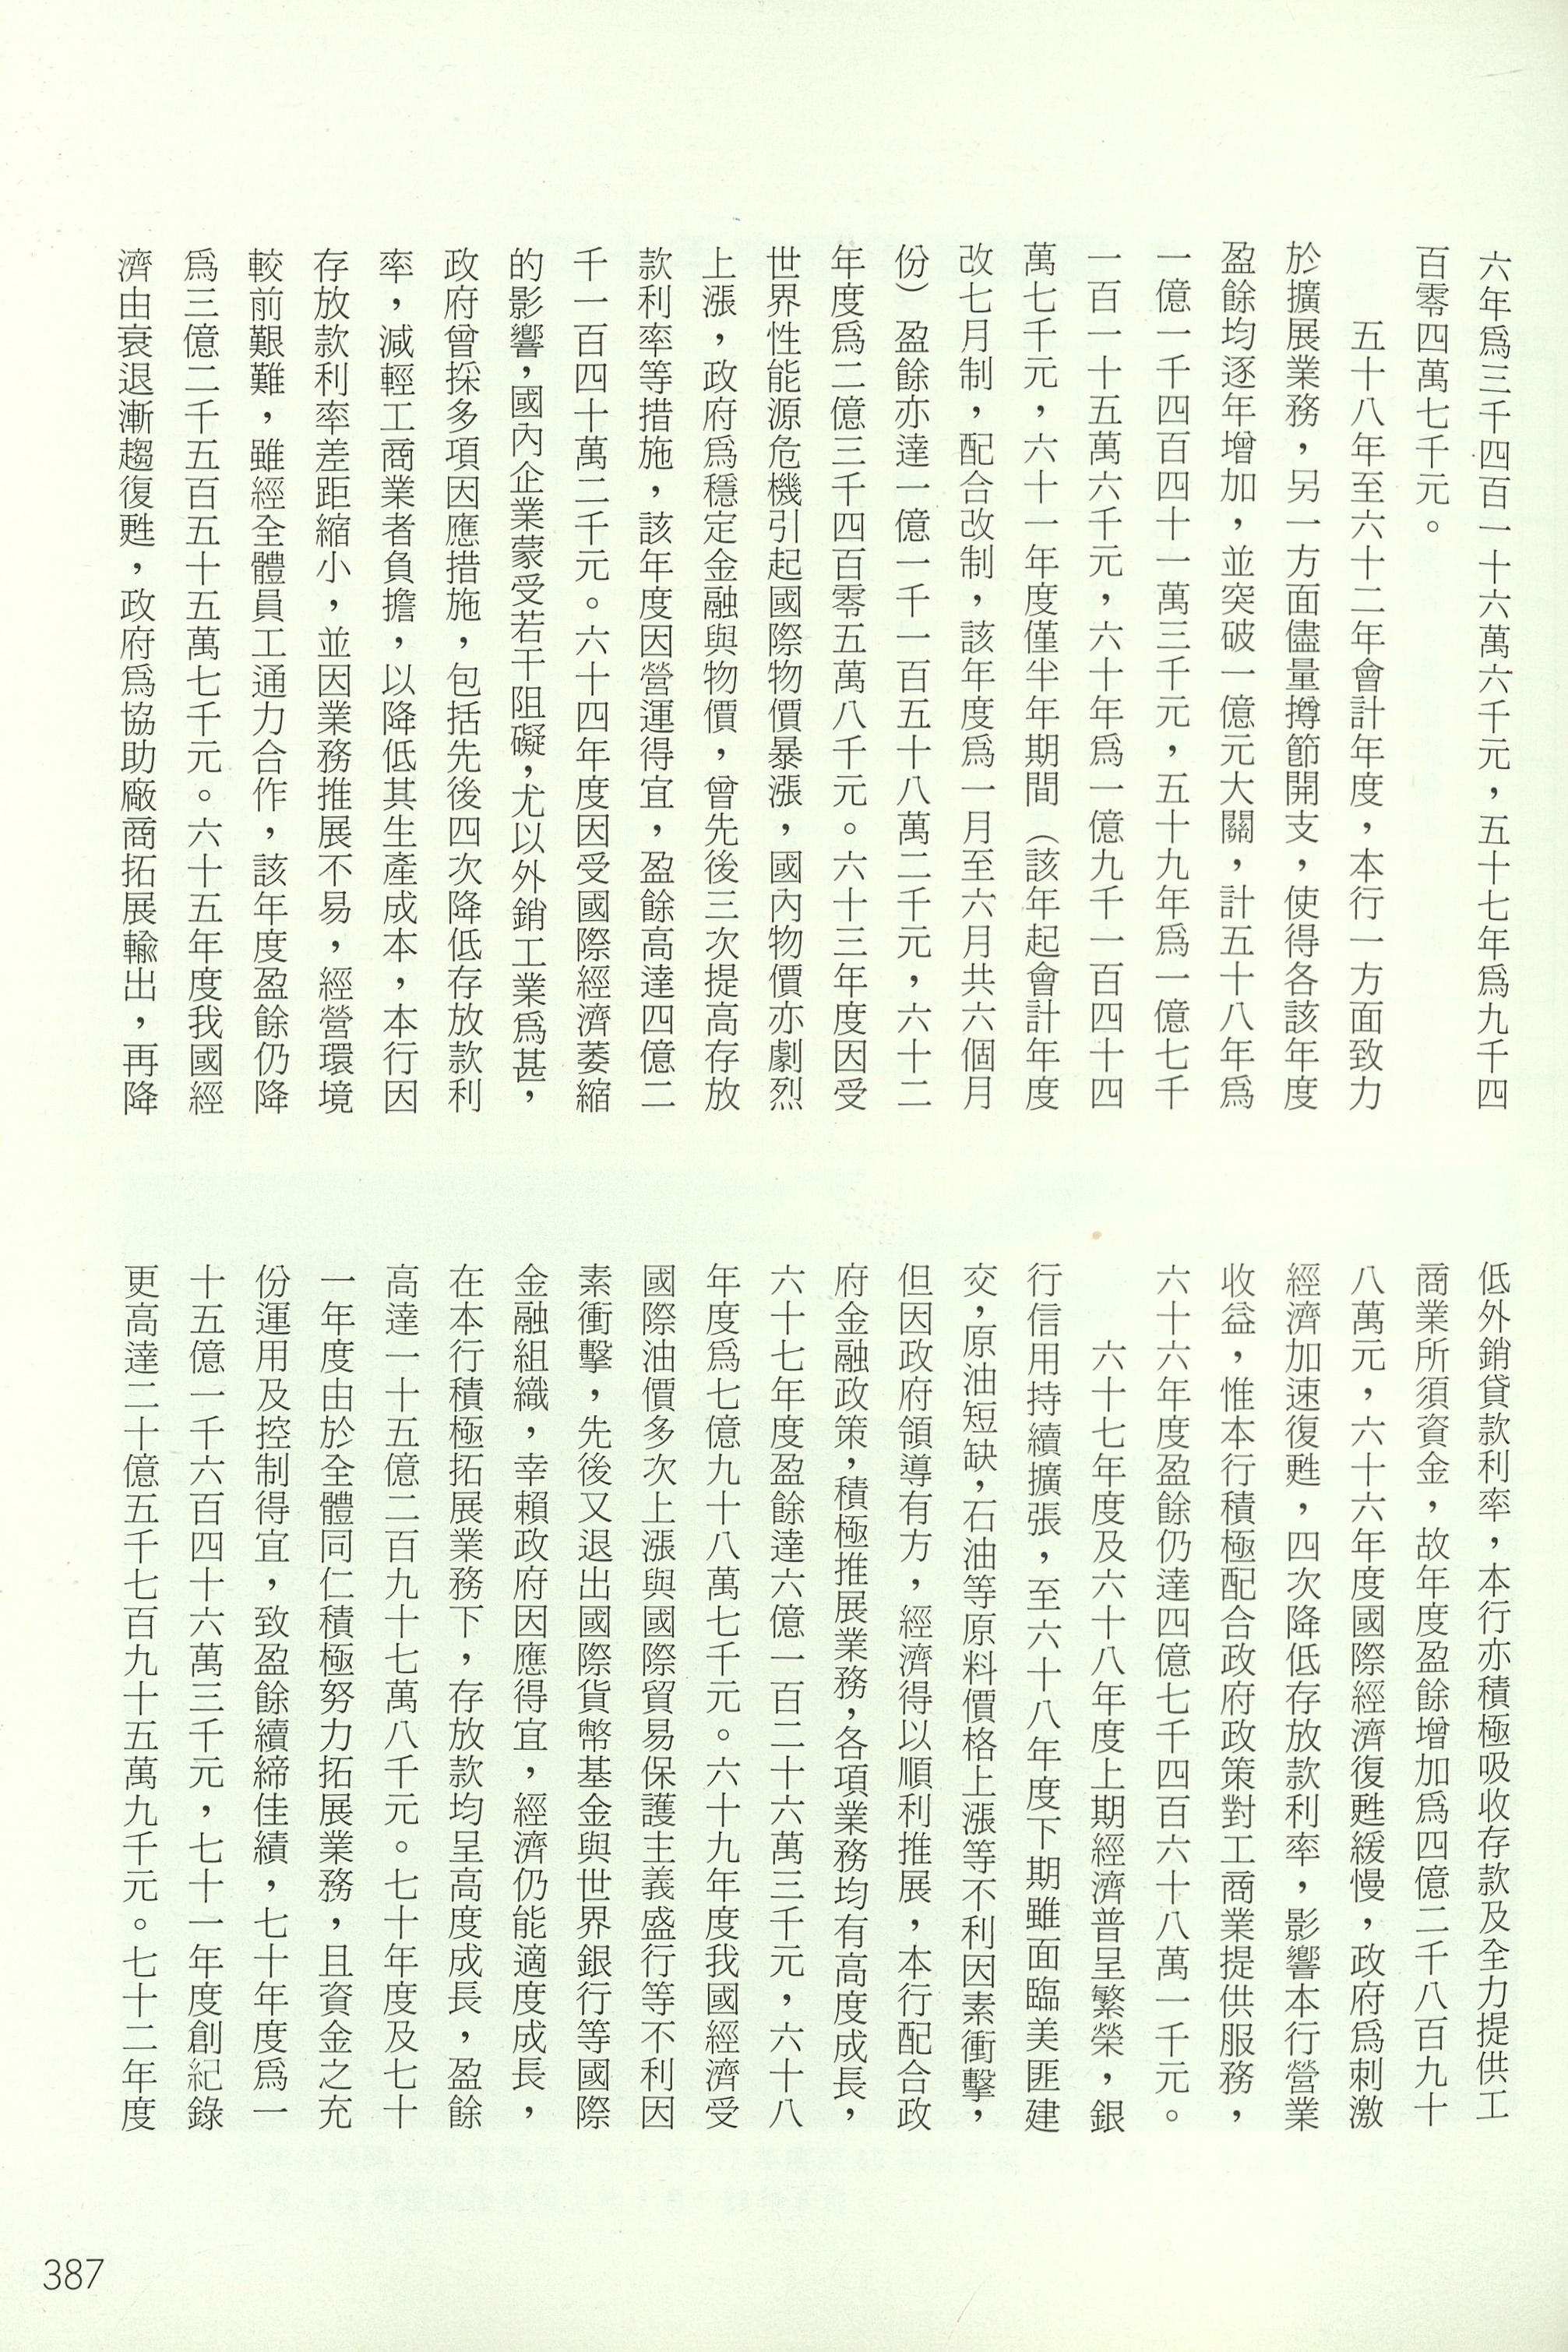 六年爲三千四百一十六萬六千元，五十七年爲九千四
百零四萬七千元。
五十八年至六十二年會計年度，本行一方面致力
於擴展業務，另一方面儘量撙節開支，使得各該年度
盈餘均逐年增加，並突破一億元大關，計五十八年爲
一億一千四百四十一萬三千元，五十九年爲一億七千
一百一十五萬六千元，六十年爲一億九千一百四十四
萬七千元，六十一年度僅半年期間（該年起會計年度
改七月制，配合改制，該年度爲一月至六月共六個月
份）盈餘亦達一億一千一百五十八萬二千元，六十二
年度爲二億三千四百零五萬八千元。六十三年度因受
世界性能源危機引起國際物價暴漲，國內物價亦劇烈
上漲，政府爲穩定金融與物價，曾先後三次提高存放
款利率等措施，該年度因營運得宜，盈餘高達四億二
千一百四十萬二千元。六十四年度因受國際經濟萎縮
的影響，國內企業蒙受若干阻礙，尤以外銷工業爲甚，
政府曾採多項因應措施，包括先後四次降低存放款利
率，減輕工商業者負擔，以降低其生產成本，本行因
存放款利率差距縮小，並因業務推展不易，經營環境
較前艱難，雖經全體員工通力合作，該年度盈餘仍降
爲三億二千五百五十五萬七千元。六十五年度我國經
濟由衰退漸趨復甦，政府爲協助廠商拓展輸出，再降
低外銷貸款利率，本行亦積極吸收存款及全力提供工
商業所須資金，故年度盈餘增加爲四億二千八百九十
八萬元，六十六年度國際經濟復甦緩慢，政府爲刺激
經濟加速復甦，四次降低存放款利率，影響本行營業
收益，惟本行積極配合政府政策對工商業提供服務，
六十六年度盈餘仍達四億七千四百六十八萬一千元。
六十七年度及六十八年度上期經濟普呈繁榮，銀
行信用持續擴張，至六十八年度下期雖面臨美匪建
交，原油短缺，石油等原料價格上漲等不利因素衝擊，
但因政府領導有方，經濟得以順利推展，本行配合政
府金融政策，積極推展業務，各項業務均有高度成長，
六十七年度盈餘達六億一百二十六萬三千元，六十八
年度爲七億九十八萬七千元。六十九年度我國經濟受
國際油價多次上漲與國際貿易保護主義盛行等不利因
素衝擊，先後又退出國際貨幣基金與世界銀行等國際
金融組織，幸賴政府因應得宜，經濟仍能適度成長，
在本行積極拓展業務下，存放款均呈高度成長，盈餘
高達一十五億二百九十七萬八千元。七十年度及七十
一年度由於全體同仁積極努力拓展業務，且資金之充
份運用及控制得宜，致盈餘續締佳績，七十年度爲一
十五億一千六百四十六萬三千元，七十一年度創紀錄
更高達二十億五千七百九十五萬九千元。七十二年度
387